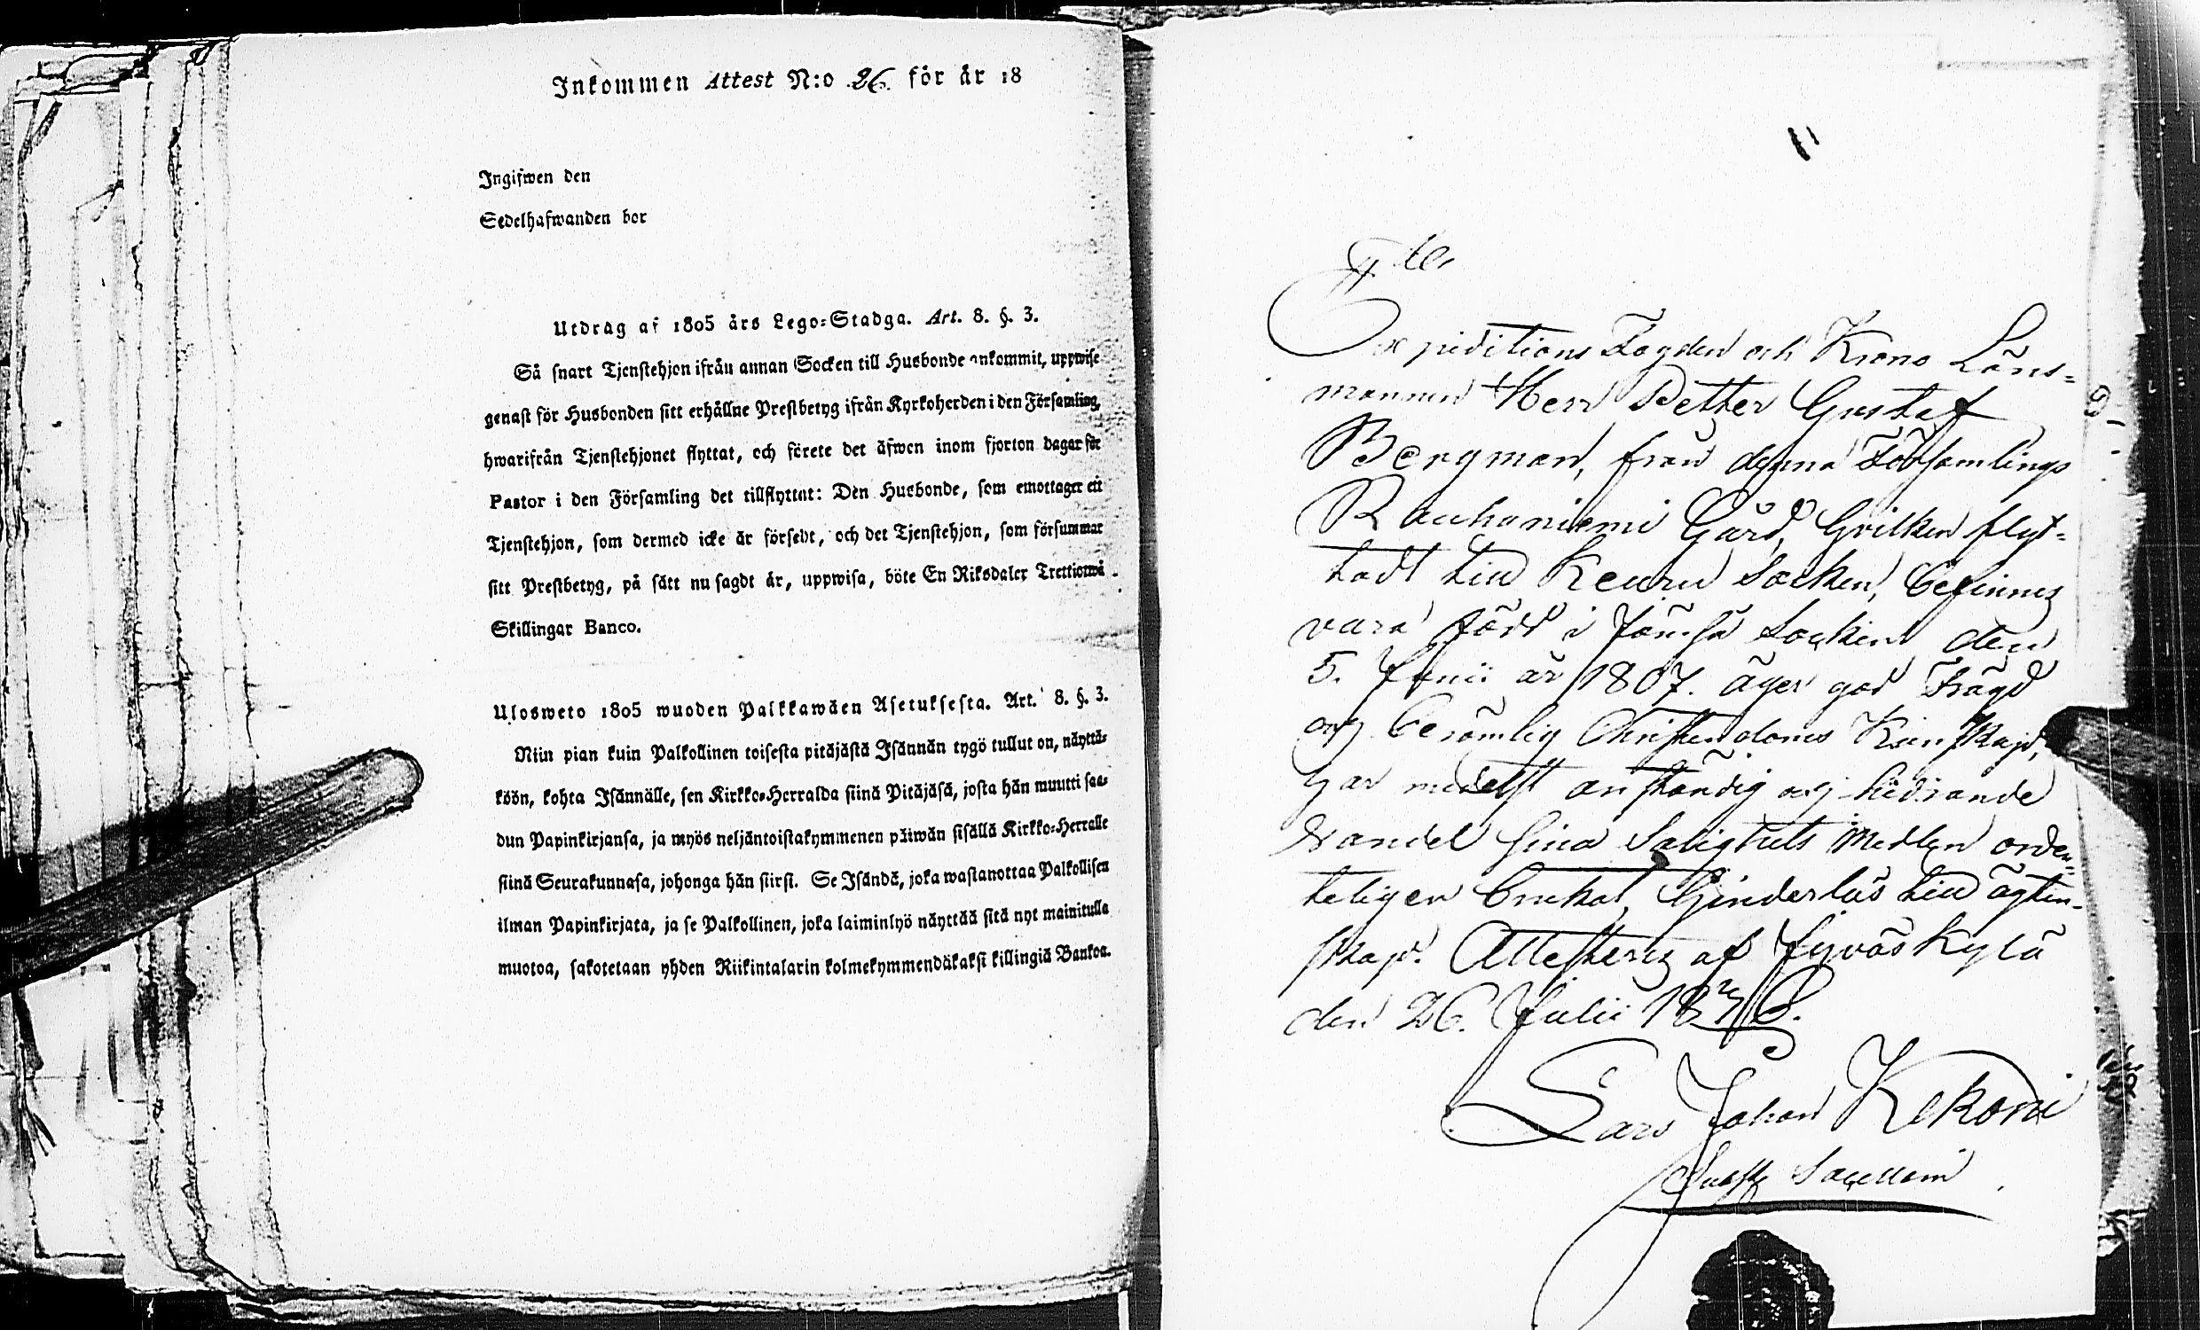 Inkommen Attest N:o 26 för år 18
Ingifwen den
Sedelhafwanden bor
Utdrag af 1805 års Lego-Stadga. Art. 8. §. 3.
Så snart Tjenstehjon ifrån annan Socken till Husbonde ankommit, uppwise
genast för Husbonden sitt erhållne Prestbetyg ifrån Kyrkoherden i den Församling,
hwarifrån Tjenstehjonet flyttat, och förete det äfwen inom fjorton dagar för
Pastor i den Församling det tillflyttat: Den Husbonde, som emottager ett
Tjenstehjon, som dermed icke är försedt, och det Tjenstehjon, som försummar
sitt Prestbetyg, på sätt nu sagdt är, uppwisa, böte En Riksdaler Trettiotwå
Skillingar Banco.
Ulosweto 1805 wuoden Palkkawäen Asetuksesta. Art. 8. §. 3.
Niin pian kuin Palkollinen toisesta pitäjästä Isännän tygö tullut on, näyttä-
köön, kohta Isännälle, sen Kirkko-Herralda siinä Pitäjäsä, josta hän muutti saa-
dun Papinkirjansa, ja myös neljäntoistakymmenen päiwän sisällä Kirkko-Herralle
siinä Seurakunnasa, johonga hän siirsi. Se Isändä, joka wastanottaa Palkollisen
ilman Papinkirjata, ja se Palkollinen, joka laiminlyö näyttää sitä nyt mainitulla
muotoa, sakotetaan yhden Riikintalarin kolmekymmendäkaksi killingiä Bankoa.
Expeditions Fogden och Krono Läns=
mannen Herr Petter Gustaf
Bergman, från denna Församlings
Rauhaniemi Gård, hvilken flyt=
tadt till Keuru Socken, befinnes
vara född i Jämsä Socken den
5. Junii år 1807. äger god Frägd
och berömlig Christendoms Kunskap,
har medelst anständig och hedrande
Vandel sina Salighets Medlen orden=
teligen brukat, hinderlös till ägten=
skap. Attesteras af Jyväskylä
den 26. Julii
Lars Johan Kekoni
Sacellani